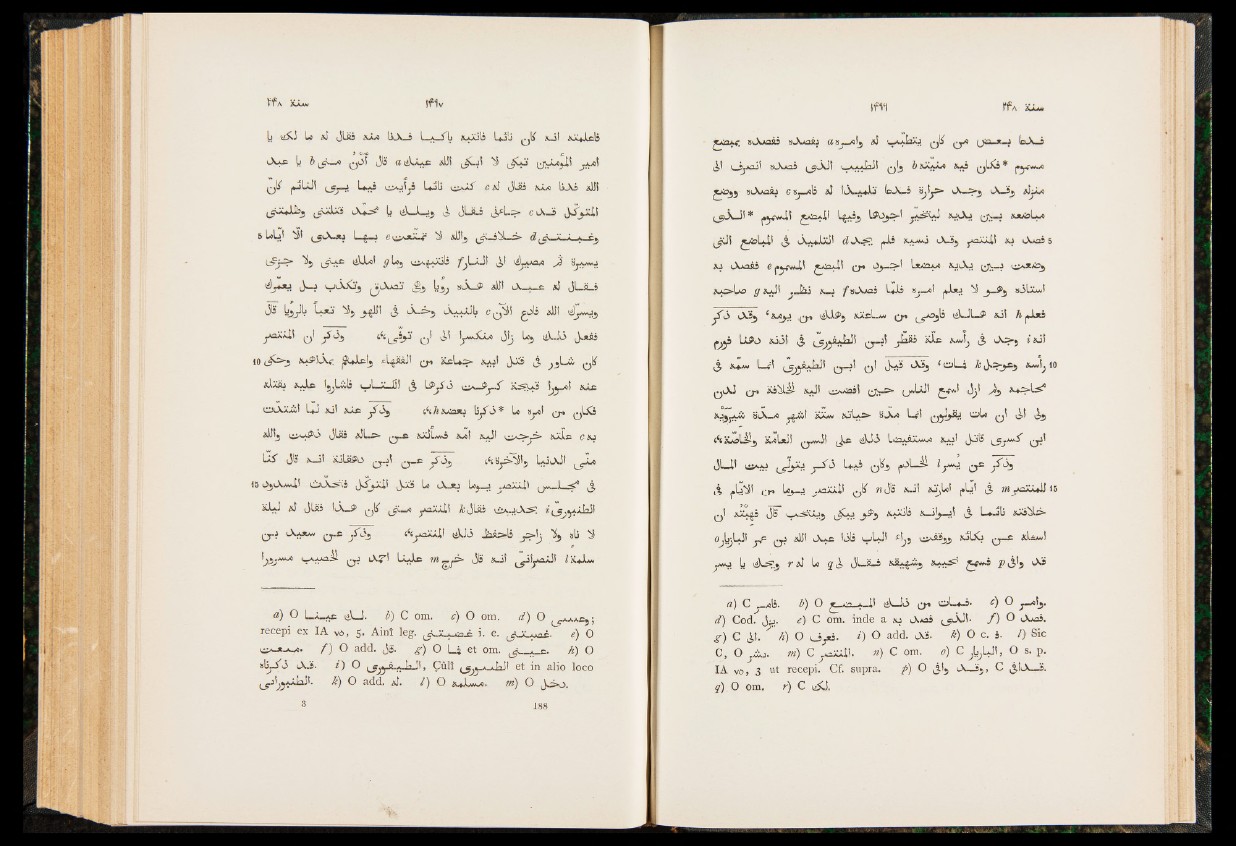 سنة ٢٤٨ ١٤٩٦
فدعا بـعـض من كان يتطبّب له وامره a بفصده ففصده بمبضع
مسموم *فكان فيه منيّته b وان الطبيب الذى فصده انصرف الى
منزله وقد وجد حرارة فدعا تلميذا له فامره c بفصده ووضع
مباضعه بين يديه ليتخيّر اجودها وفيها المبضع المسموم *الذى
5 فصد به المنتصر وقد نسيه فلم يجد d التلميذ فى المباضع التى
وضعت بين يديه مبضعا اجود من المبضع المسموم e ففصد به
استاذه وهو لا يعلم امره فلمّا فصده f به نظر اليه g صاحبه
فعلم h انه هالك فاوصى من ساعته وهلك من يومه، وقد ذكر
انه i وجد فى رأسه علّة فقطّر ابن الطيفورى فى اذنه دهنا فورم
10 رأسه وعوجل k فمات، وقد قيل ان ابن الطيفورى انما سمّه فى
محاجمه ولم ازل اسمع الناس حين افضت اليه الخلافة من لدن
ولى الى ان مات يقولون انما مدّة حياته ستّة اشهر مدّة شيرويه
ابن كسرى قاتل ابيه مستفيضا ذلك على السن العامّة والخاصّة
وذكر عن يُسر l الخادم وكان فيما ذكر يتولّى بيت المال
15 للمنتصر m فى ايّام امارته انه قال n كان المنتصر يوما من الايّام فى
خلافته نائما فى ايوانه فانتبه وهو يبكى وينتحب قال فهبته ان
اسئله عن بكائه ووقفت وراء الباب فاذا عبد الله بن عمر البازيار o
قد وافى p فسمع نحيبه وشهيقه فقال لى q ما له r ويحك يا يسر
a) C فامر. b) O فمات من ذلك المبضع. c) O وامر.
d) Cod. يزل. e) C om. inde a الذى فصد به. f) O فصد.
g) C الى. h) O فعرف. i) O add. قد. k) O c. ف. l) Sic
C, O بشر. m) C المنتصر. n) C om. o) C البازيار, O s. p.
IA ٧٥, 3 ut recepi. Cf. supra. p) O وقد وافى, C فداقى.
q) O om. r) C لك.
١٤٩٧ سنة ٢٤٨
فاعلمته انه كان نائما فانتبه باكـيـا فدنا منه فقال له ما لك يا
امير المؤمنين تبكى لا ابكى الله عينك a قال ادن منى b يا عبد
الله فدنا منه فقال له c كنت نائما فرأيت فيما يرى النائم كان
المتوكّل قد c جاءنى فقال لى ويلك يا محمّد قتلتنى وظلمتنى
5 وغبنتنى d خلافتى والله لا تمتّعت e بها بعدى الّا ايّاما
يسيرة ثم مصيرك الى النار f فانتبهت وما g املك عينى ولا جزعى
فقال له عبد الله هذه رؤيا وهى تصدق وتكذب بل يعمرك
ويسرك الله فادع الآن c بالنبيذ وخذ فى اللهو ولا تعبأ بالرؤيا قال
ففعل ذلك وما زال منكسرا الى ان توفى، وذكر ان المنتصر
10 كان شاور فى قتل ابيه جماعة من الفقهاء واعلمهم بمذاهبه وحكى
عنه امورا قبيحة كرهت ذكرها فى الكتاب فاشاروا عليه بقتله
فكان من امره ما *ذكرنا بعضه h، وذكر عنه انه لمّا اشتدّت
به c علّته خرجت اليه امّه فسألته عن حاله فقال ذهبت والله
منّى الدنيا والآخرة، وذكر عن ابن دهقانة انه قال كنّا
15 فى مجلس المنتصر يوما بعد ما قتل المتوكّل فتحدّث المسدود
الطنبورى i بحديث فقال k المنتصر متى كان هذا فقال له ليلة
لا ناه ولا زاجر فاحفظ ذلك المنتصر، وذكر عن سعيد بن
سلمة l النصرانى انه قال خرج m علينا احمد بن الخصيب مسرورا
a) O لك عينا. b) C om. c) O om. d) O ;
recepi ex IA ٧٥, 5. Ainî leg. i. e. e) O
f) O add. قال. g) O فما et om. عينى. h) O
قد ذكرناه. i) O الطيفورى, Çûlî الطنبورى et in alio loco
الطنبورانى. k) O add. له. l) O مسلمة. m) O دخل.
3 188